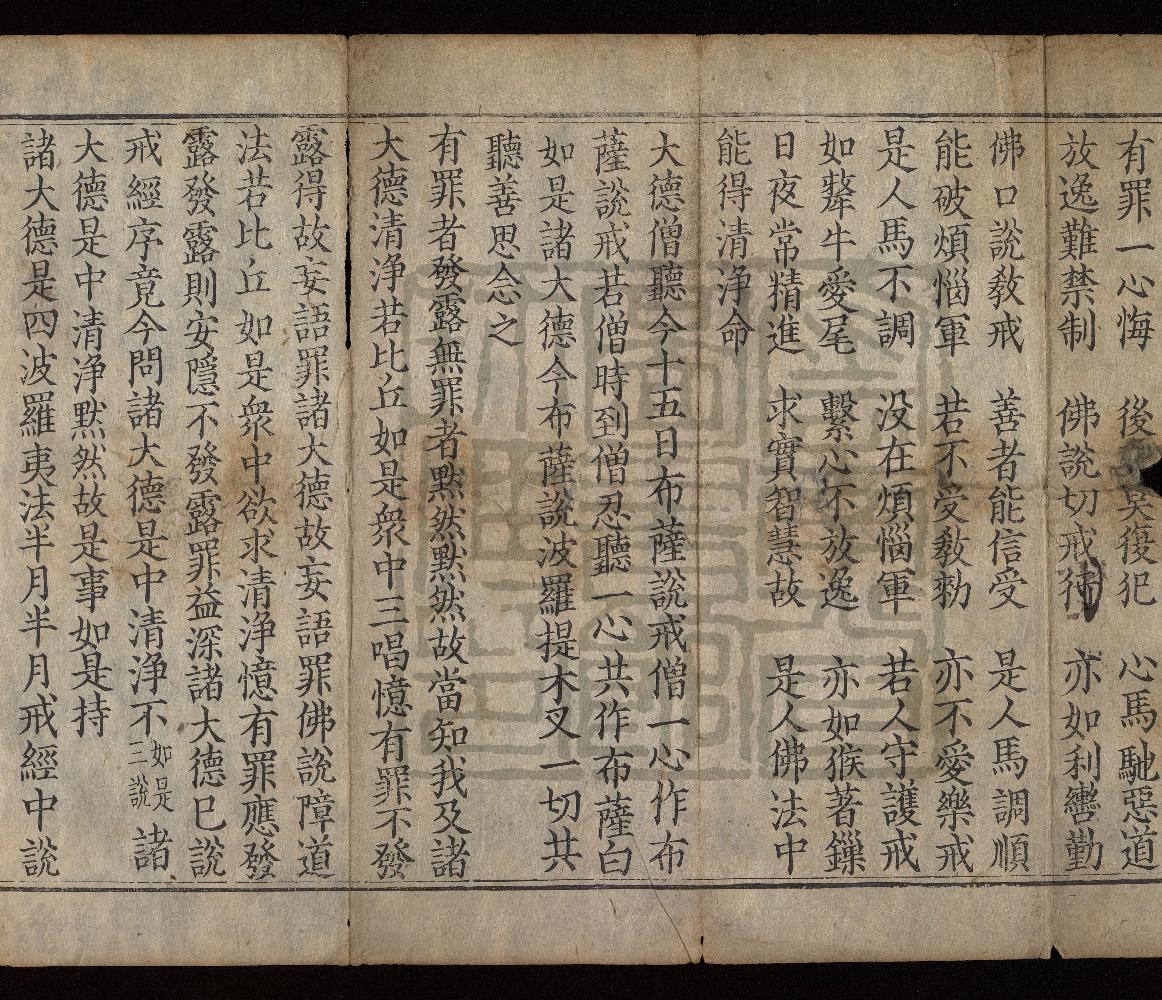 有罪一心悔　後莫復犯　心馬馳惡道
放逸難禁制　佛說切戒行　亦如利轡勤
佛口說敎戒　善者能信受　是人馬調順
能破煩惱軍　若不受敎勑　亦不愛樂戒
是人馬不調　没在煩惱軍　若人守護戒
如犛牛愛尾　繫心不放逸　亦如猴著鏁
日夜常精進　求實智慧故　是人佛法中
能得清淨命
大德僧聽今十五日布薩說戒僧一心作布
薩說戒若僧時到僧忍聽一心共作布薩白
如是諸大德今布薩說波羅提木叉一切共
聽善思念之
有罪者發露無罪者默然默然故當知我及諸
大德清淨若比丘如是衆中三唱憶有罪不發
露得故妄語罪諸大德故妄語罪佛說障道
法若比丘如是衆中欲求清淨憶有罪應發
露發露則安隱不發露罪益深諸大德巳說
戒經序竟今問諸大德是中清淨不如是三說諸
大德是中清淨默然故是事如是持
諸大德是四波羅夷法半月半月戒經中說